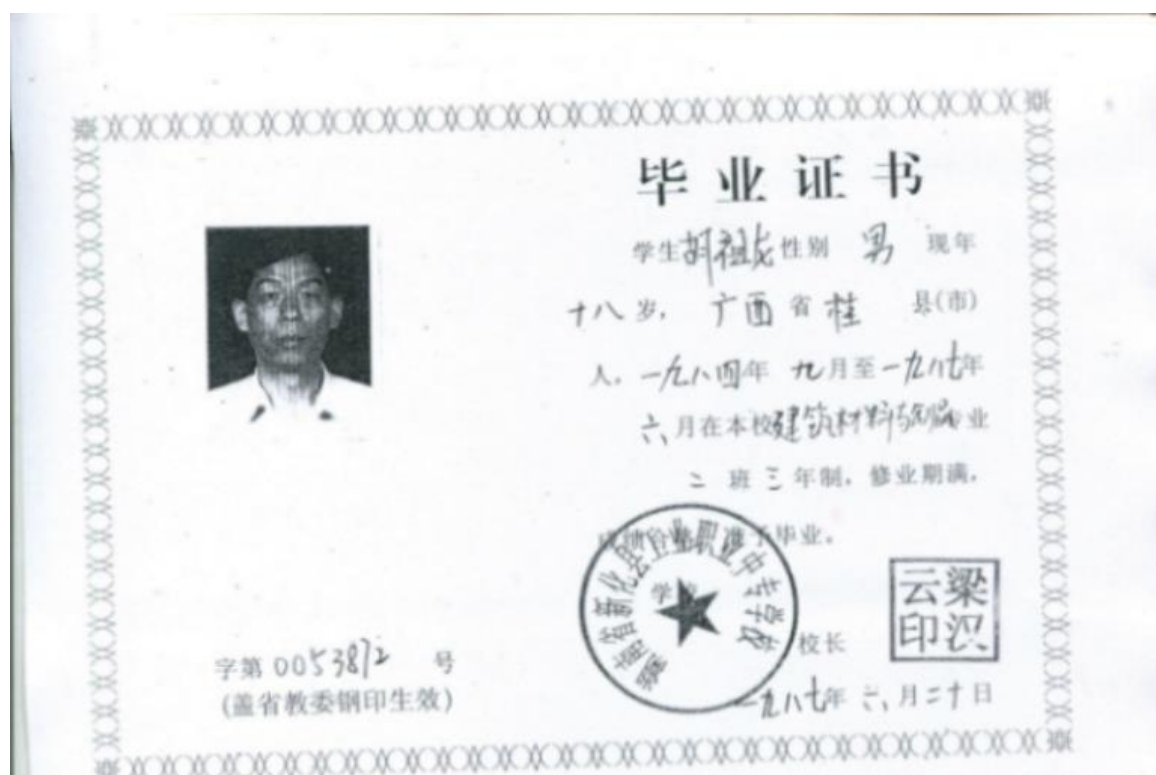 毕业证书
学生胡祖龙性别 男 现年
十八岁，广西省桂 县(市)
人，一九八四年 九月至一九八七年
六月在本校建筑材料与制品专业
二 班三年制，修业期满，
准予毕业。
湖南省新化县工业职业中专学校
校长
梁汉云印
一九八七年 六月二十日
字第0053812号
(盖省教委钢印生效)